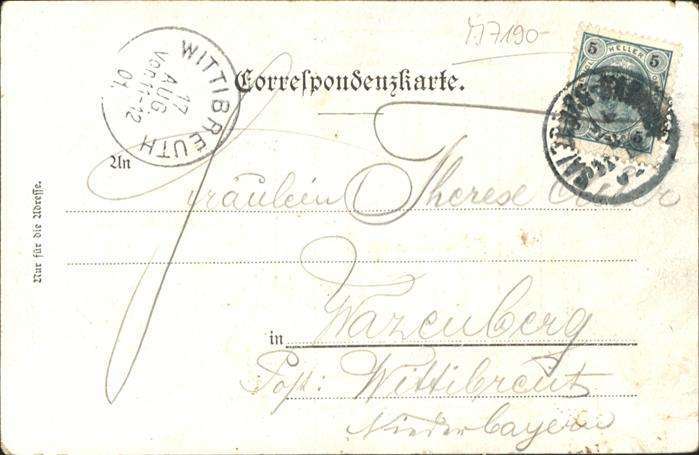 Correspondenzkarte.
5 HELLER 5
5
WITTIBREUTH
17
AUG
VOR. 11-12
01.
An
Fräulein Therese
in Wazenberg
Post: Wittibreut
Niederbayern
Nur für die Adresse.